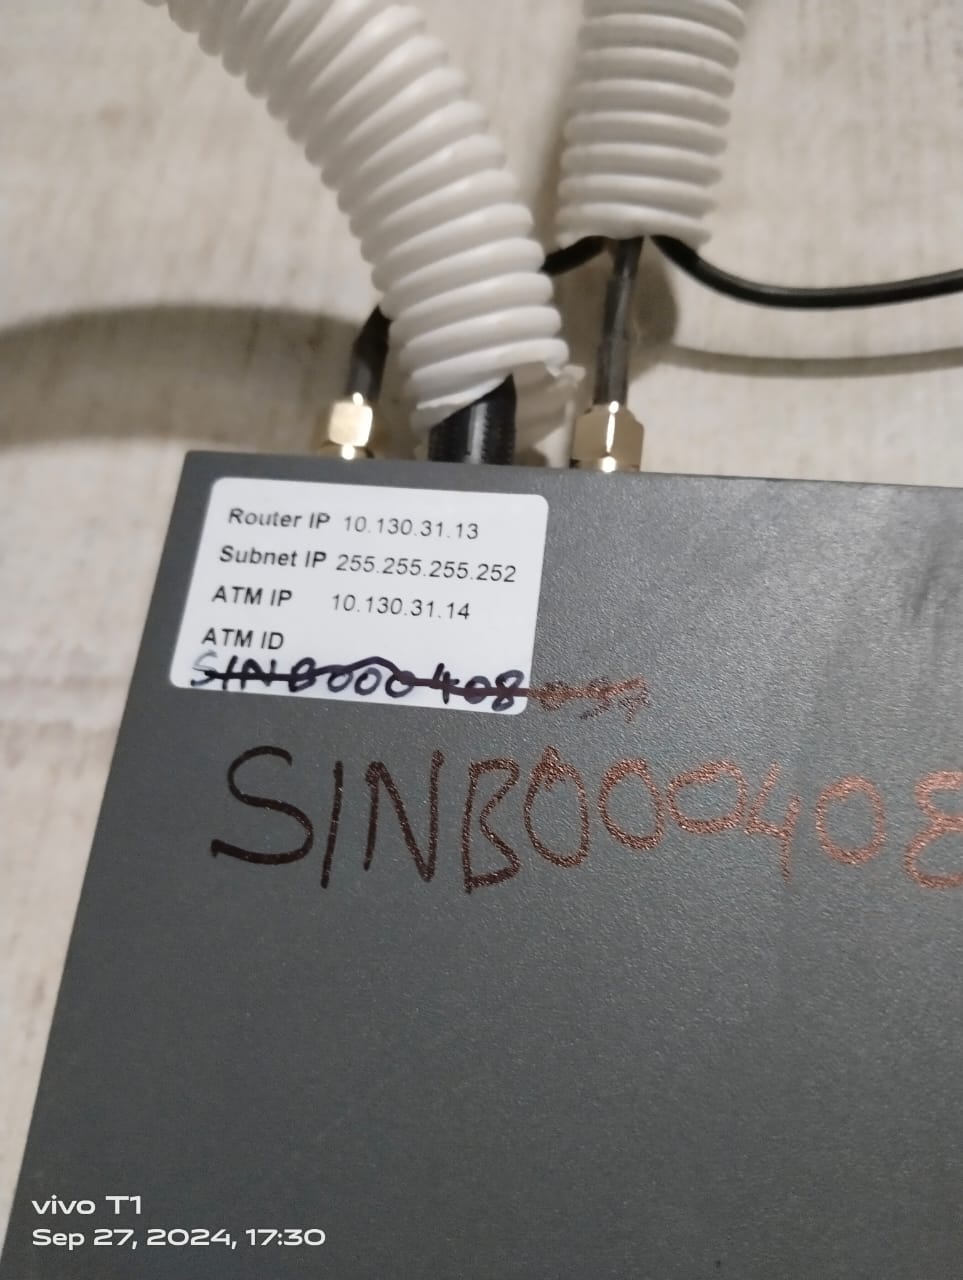 Router IP 10.130.31.13
Subnet IP 255.255.255.252
ATM IP 10.130.31.14
ATM ID
SINB000408
SINB000408
vivo T1
Sep 27, 2024, 17:30